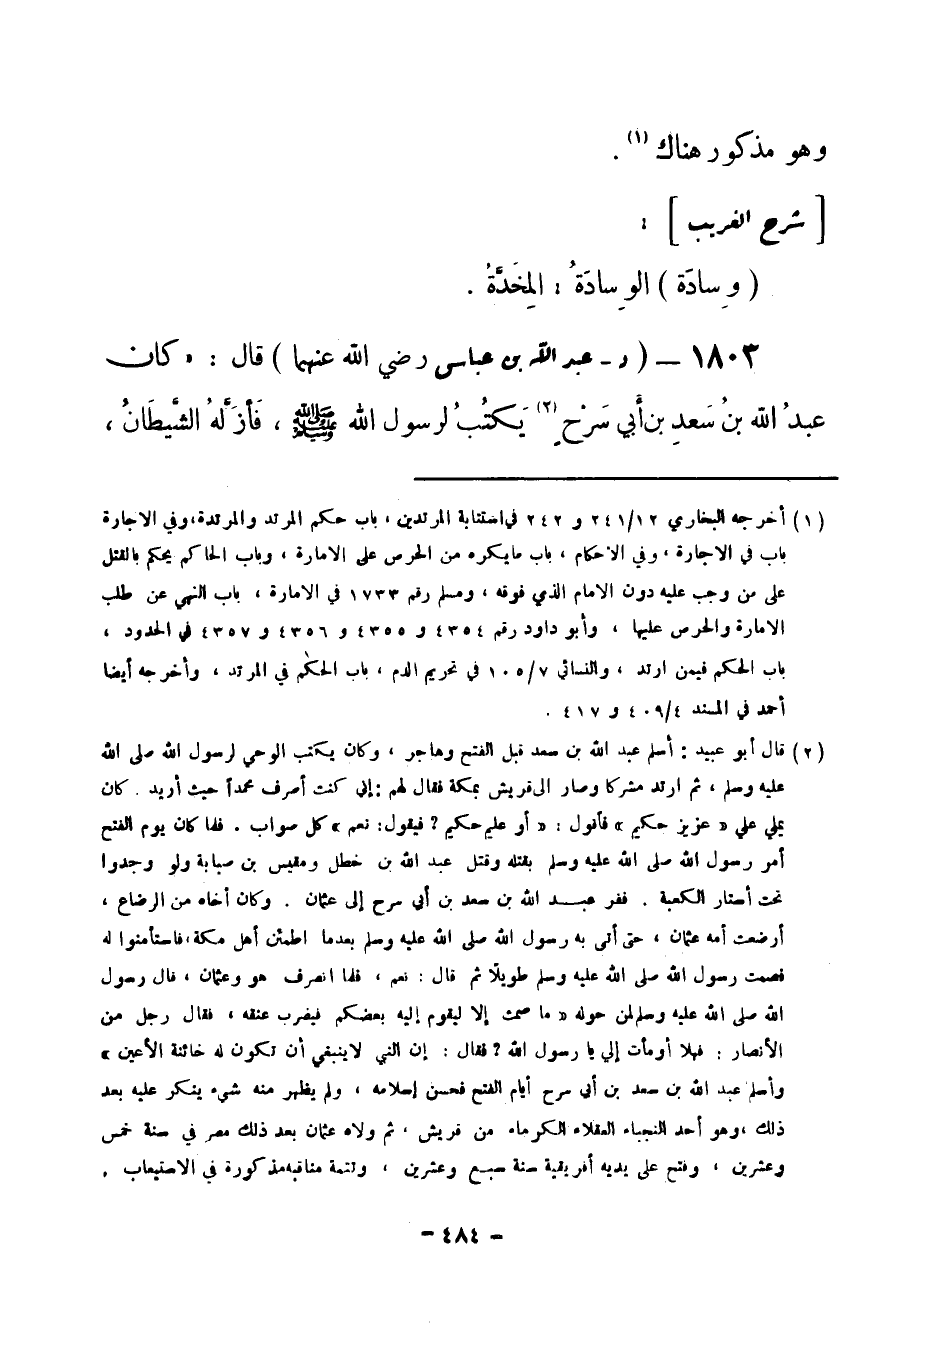 وهو مذكور هناك (١) .
[ شرح الغريب ] :
( وِسادَة ) الوِسادَةُ : المِخَدَّةُ .
١٨٠٣ – ( د - عبد الله بن عباس رضي الله عنهما ) قال : « كان
عبدُ الله بنُ سَعدِ بن أبي سَرْحٍ (٢) يَكتُبُ لرسول الله ﷺ ، فَأزَلَّهُ الشَّيطَانُ ،
(١) أخرجه البخاري ٢٤١/١٢ و ٢٤٢ في استتابة المرتدين ، باب حكم المرتد والمرتدة ، وفي الاجارة
باب في الاجارة ، وفي الاحكام ، باب مايكره من الحرص على الامارة ، وباب الحاكم يحكم بالقتل
على من وجب عليه دون الامام الذي فوقه ، ومسلم رقم ١٧٣٣ في الامارة ، باب النهي عن طلب
الامارة والحرص عليها ، وأبو داود رقم ٤٣٥٤ و ٤٣٥٥ و ٤٣٥٦ و ٤٣٥٧ في الحدود ،
باب الحكم فيمن ارتد ، والنسائي ١٠٥/٧ في تحريم الدم ، باب الحكم في المرتد ، وأخرجه أيضا
أحمد في المسند ٤٠٩/٤ و ٤١٧ .
(٢) قال أبو عبيد : أسلم عبد الله بن سعد قبل الفتح وهاجر ، وكان يكتب الوحي لرسول الله صلى الله
عليه وسلم ، ثم ارتد مشركا وصار الى قريش بمكة فقال لهم : إني كنت أصرف محمداً حيث أريد . كان
يملي علي « عزيز حكيم » فأقول : « أو عليم حكيم ؟ فيقول : نعم » كل صواب . فلما كان يوم الفتح
أمر رسول الله صلى الله عليه وسلم بقتله وقتل عبد الله بن خطل ومقيس بن صبابة ولو وجدوا
تحت أستار الكعبة . ففر عبد الله بن سعد بن أبي سرح إلى عثمان . وكان أخاه من الرضاع ،
أرضعت أمه عثمان ، حتى أتى به رسول الله صلى الله عليه وسلم بعدما اطمئن أهل مكة ، فاستأمنوا له
فصمت رسول الله صلى الله عليه وسلم طويلًا ثم قال : نعم ، فلما انصرف هو وعثمان ، قال رسول
الله صلى الله عليه وسلم لمن حوله « ما صمت إلا ليقوم إليه بعضكم فيضرب عنقه ، فقال رجل من
الأنصار : فهلا أومأت إلي يا رسول الله ؟ فقال : إن النبي لاينبغي أن تكون له خائنة الأعين »
وأسلم عبد الله بن سعد بن أبي سرح أيام الفتح فحسن إسلامه ، ولم يظهر منه شيء ينكر عليه بعد
ذلك ، وهو أحد النجباء العقلاء الكرماء من قريش ، ثم ولاه عثمان بعد ذلك مصر في سنة خمس
وعشرين ، وفتح على يديه أفريقية سنة سبع وعشرين ، وتتمة مناقبه مذكورة في الاستيعاب .
- ٤٨٤ -